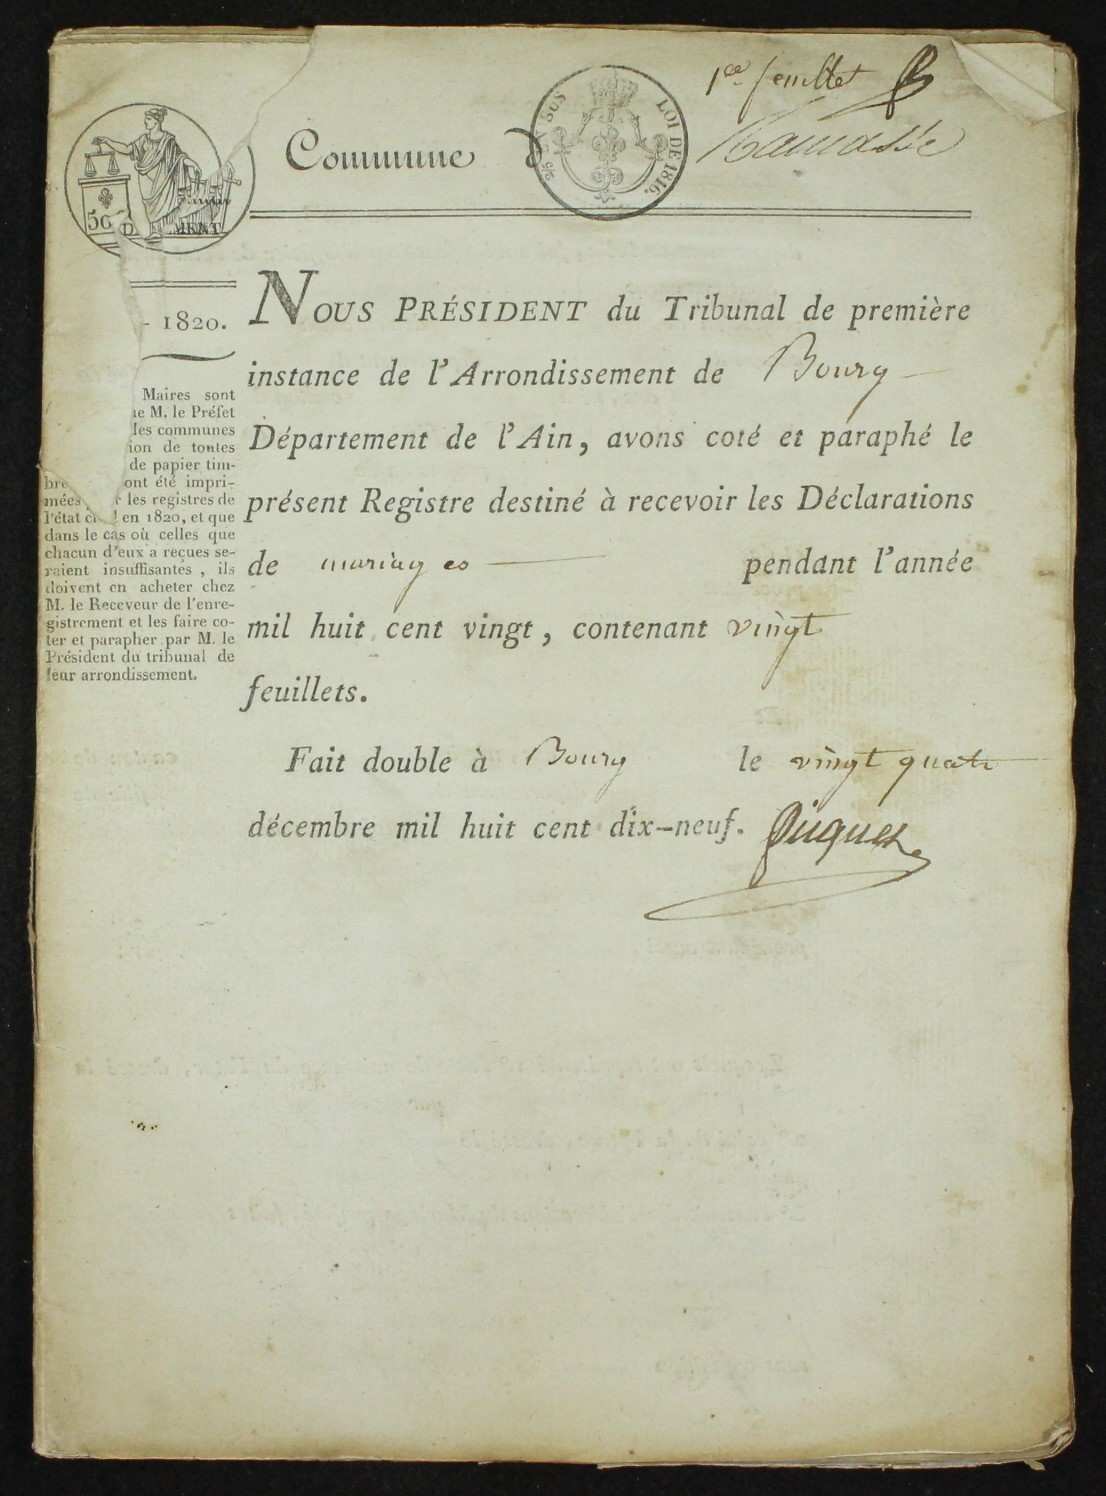 1er feuillet
Commune d
Ramasse
EN SUS
LOI DE 1816.
50
MENT
1820.
Nous PRÉSIDENT du Tribunal de première
instance de l'Arrondissement de Bourg
Département de l'Ain, avons coté et paraphé le
présent Registre destiné à recevoir les Déclarations
de mariages pendant l'année
mil huit cent vingt, contenant vingt
feuillets.
Fait double à Bourg le vingt quatre
décembre mil huit cent dix-neuf.
Maires sont
M. le Préfet
les communes
ion de toutes
de papier tim-
bre ont été impri-
mées les registres de
l'état en 1820, et que
dans le cas où celles que
chacun d'eux a reçues se-
raient insuffisantes, ils
doivent en acheter chez
M. le Receveur de l'enre-
gistrement et les faire co-
ter et parapher par M. le
Président du tribunal de
leur arrondissement.